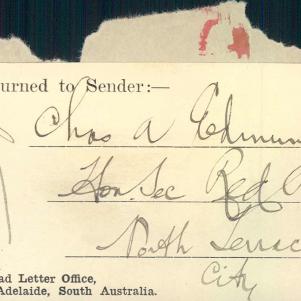 urned to Sender:—
Chas A Edmun
Hon. Sec Red C
North Terrac
City
ad Letter Office,
Adelaide, South Australia.